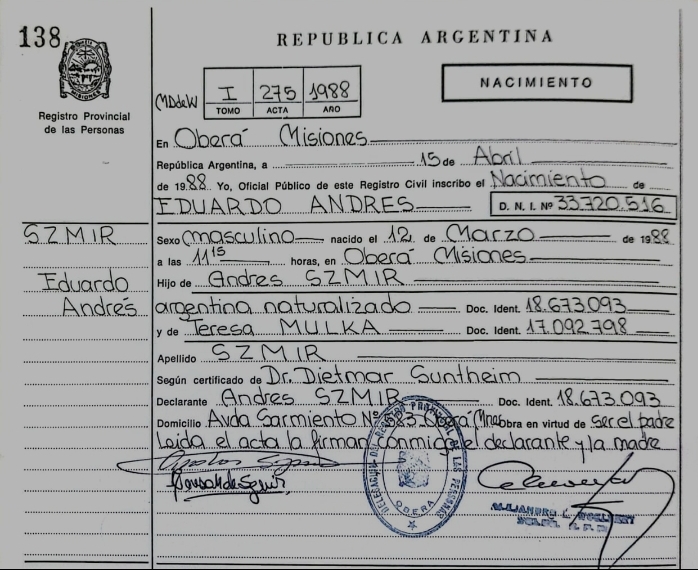 138
REPUBLICA ARGENTINA
Registro Provincial
de las Personas
MDdeW
I 275 1988
TOMO ACTA AÑO
NACIMIENTO
En Oberá Misiones
República Argentina, a 15 de Abril
de 1988 Yo, Oficial Público de este Registro Civil inscribo el Nacimiento de
EDUARDO ANDRES D. N. I. Nº 33.720.516
SZMIR
Eduardo
Andrés
Sexo masculino nacido el 12 de Marzo de 1988
a las 11 15 horas, en Oberá Misiones
Hijo de Andres SZMIR
argentina naturalizado Doc. Ident. 18.673.093
y de Teresa MULKA Doc. Ident. 17.092.798
Apellido SZMIR
Según certificado de Dr. Dietmar Suntheim
Declarante Andres SZMIR Doc. Ident. 18.673.093
Domicilio Avda Sarmiento Nº 583 Oberá Mnes obra en virtud de ser el padre
Leída el acta la firman conmigo el declarante y la madre
DELEGACION DEL REGISTRO PROVINCIAL DE LAS PERSONAS
OBERA